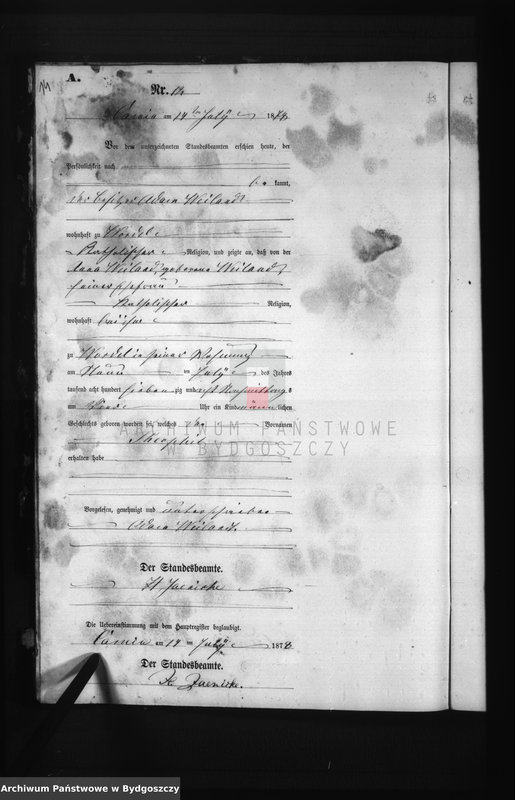 A.
Nr. 12
Camin am 14ten July 1878
Vor dem unterzeichneten Standesbeamten erschien heute, der
Persönlichkeit nach
be kannt,
der Besitzer Adam Weiland
wohnhaft zu
Katholischer Religion, und zeigte an, daß von der
Weiland, geborene Weiland
seiner Ehefrau
Katholischer Religion,
wohnhaft bei ihm
zu in seiner Wohnung
am July des Jahres
tausend acht hundert sieben zig und acht Nachmittags
um Uhr ein Kind männlichen
Geschlechts geboren worden sei, welches Vornamen
Theophil
erhalten habe
ARCHIWUM PAŃSTWOWE
W BYDGOSZCZY
Vorgelesen, genehmigt und unterschrieben
Adam Weiland.
Der Standesbeamte.
Jaenicke
Die Uebereinstimmung mit dem Hauptregister beglaubigt.
Camin am 14ten July 1878
Der Standesbeamte.
Jaenicke.
Archiwum Państwowe w Bydgoszczy